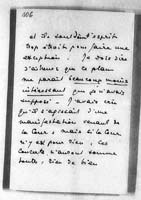 106
et il faudrait esprit
trop étroit pour faire une
exception. Je dois dire
d'ailleurs que ce plan
me paraît beaucoup moins
intéressant que je n'avais
supposé. J'avais cru
qu'il s'agissait d'une
manifestation venant de
la Cour; mais si la Cour
n'y est pour rien, ces
concerts n'auront comme
toute, rien de bien